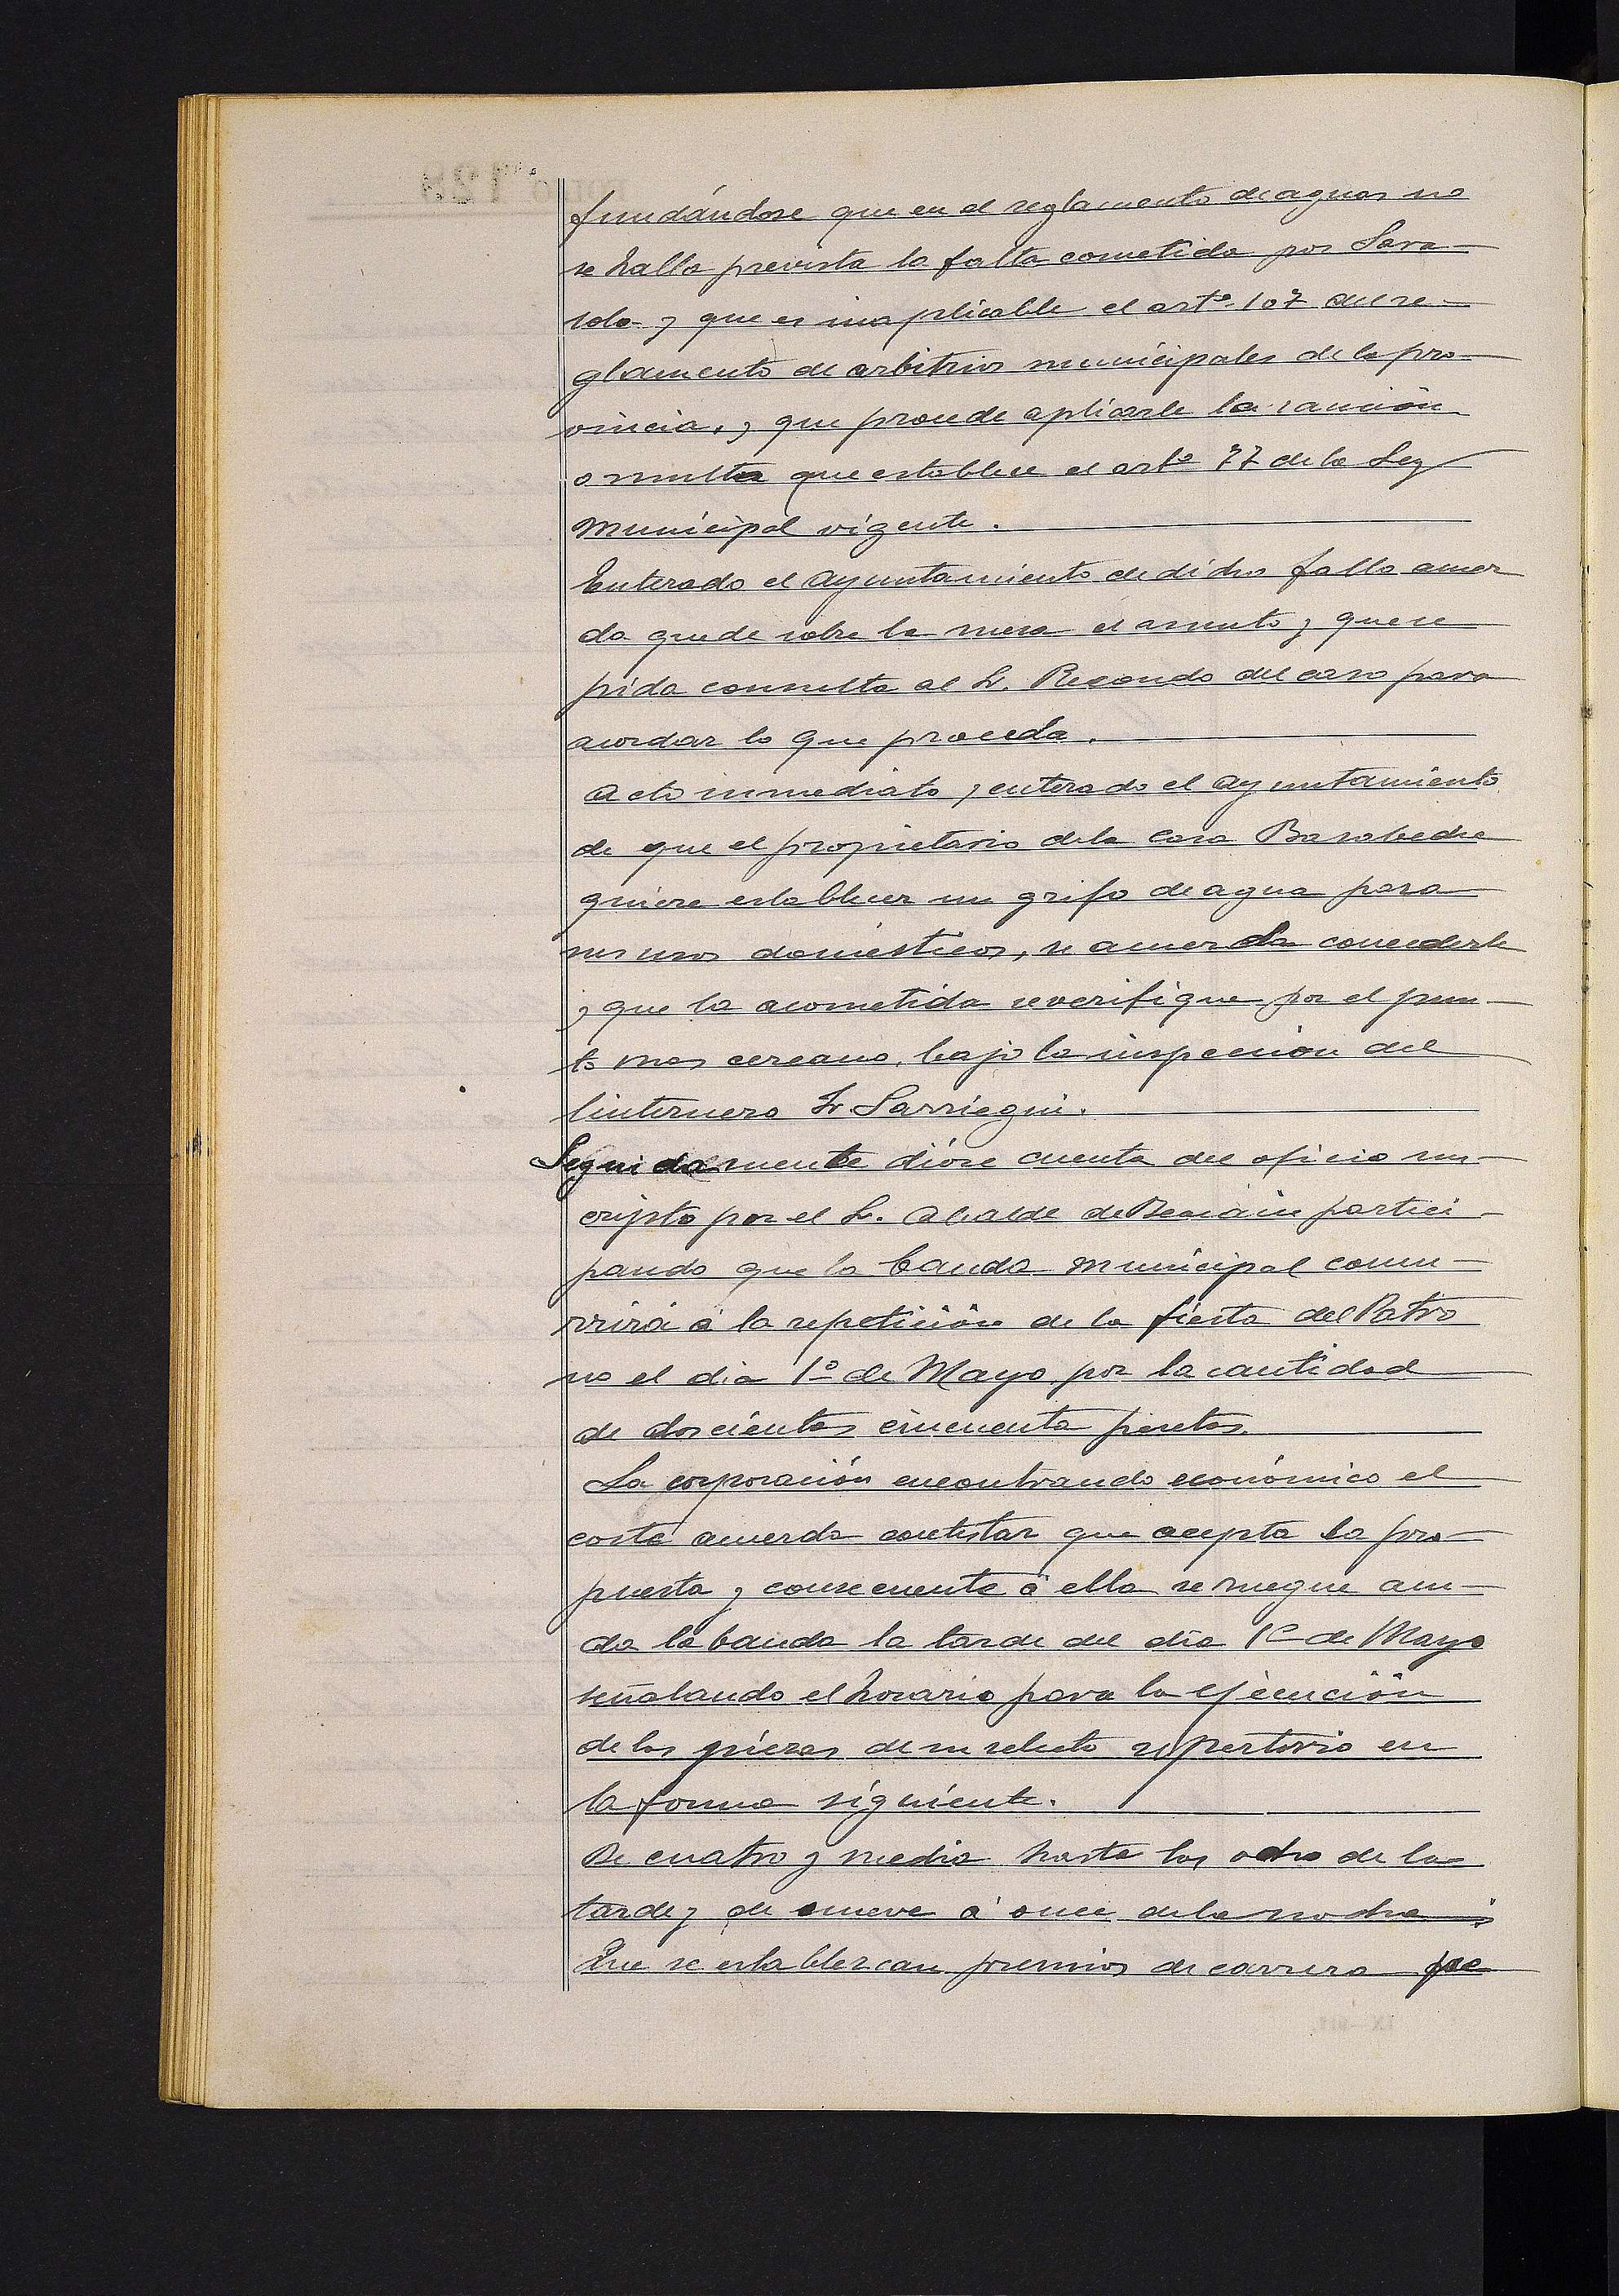 fundándose que en el reglamento de aguas no
se halla prevista la falta cometida por Sara-
sola y que es inaplicable el artº 107 del re-
glamento de arbitrios municipales de la pro-
vincia, y que procede aplicarle la sanción
o multa que establece el artº 77 de la Ley
Municipal vigente.
Enterado el Ayuntamiento de dicho fallo acuer
da quede sobre la mesa el asunto y que se
pida consulta al Sr. Recondo del caso para
acordar lo que proceda.
Acto inmediato, enterado el Ayuntamiento
de que el propietario de la casa
quiere establecer un grifo de agua para
sus usos domésticos, se acuerda concederle
y que la acometida se verifique por el pun-
to mas cercano, bajo la inspección del
linternero Sr Sarriegui.
Seguidamente dióse cuenta del oficio sus-
cripto por el Sr. Alcalde de Beasáin partici-
pando que la banda municipal concu-
rrirá á la repetición de la fiesta del Patro
no el dia 1º de Mayo por la cantidad
de doscientas cincuenta pesetas.
La corporación encontrando económico el
coste acuerda contestar que acepta la pro-
puesta y consecuente á ella se ruegue acu-
da la banda la tarde del día 1º de Mayo
señalando el horario para la ejecución
de las piezas de su selecto repertorio en
la forma siguiente.
De cuatro y media hasta las ocho de la
tarde y de nueve á once de la noche
Que se establezcan premios de carrera pe